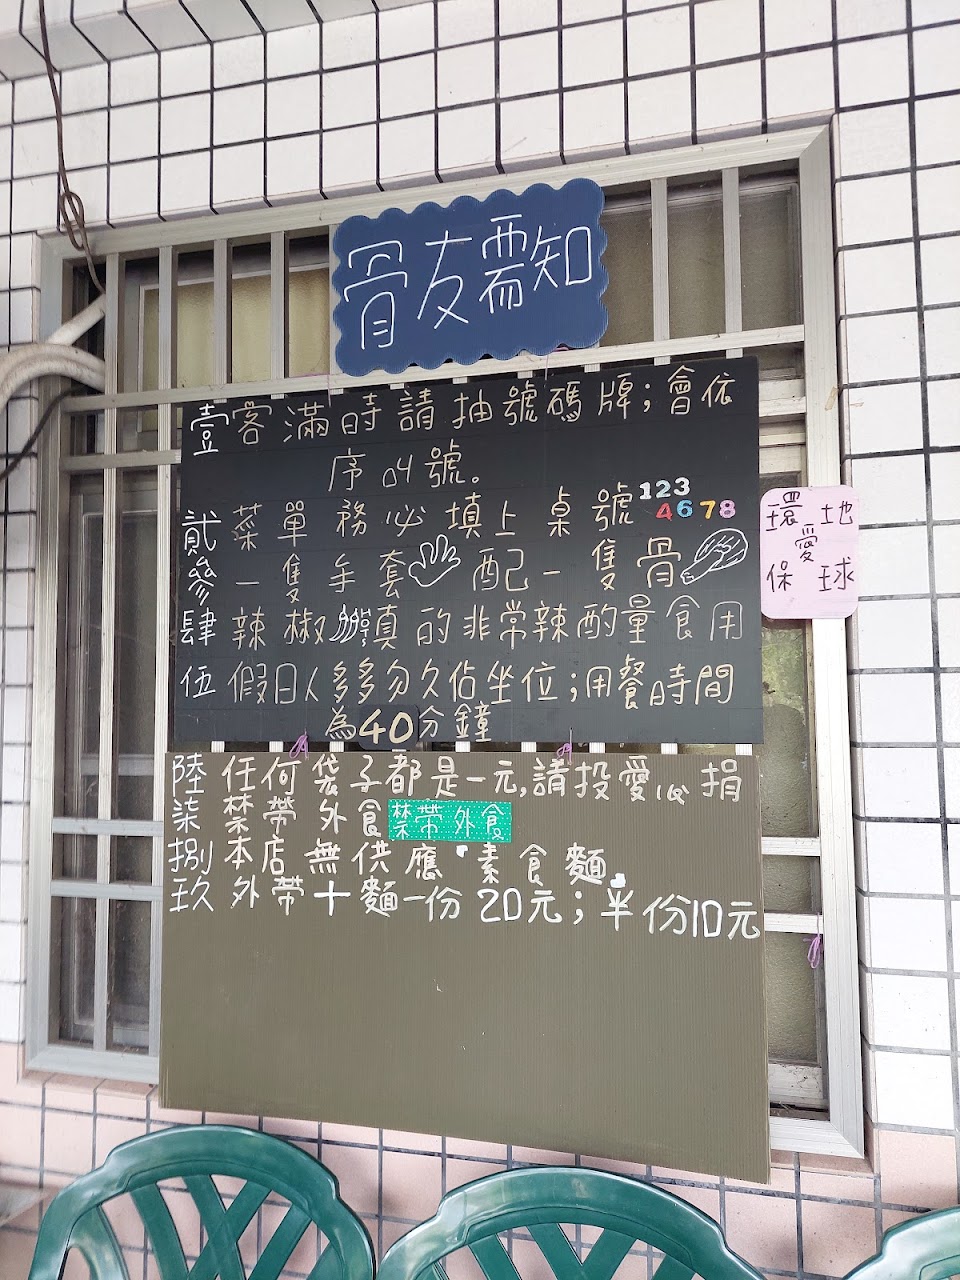 骨友需知
壹客滿時請抽號碼牌；會依
序叫號。
貳菜單務必填上桌號
123
4678
參一隻手套配一隻骨
肆辣椒真的非常辣酌量食用
伍假日人多多勿久佔坐位；用餐時間
為40分鐘
陸任何袋子都是一元,請投愛心捐
柒禁帶外食禁帶外食
捌本店無供應"素食麵"
玖外帶十麵一份20元；半份10元
環地
愛
保球